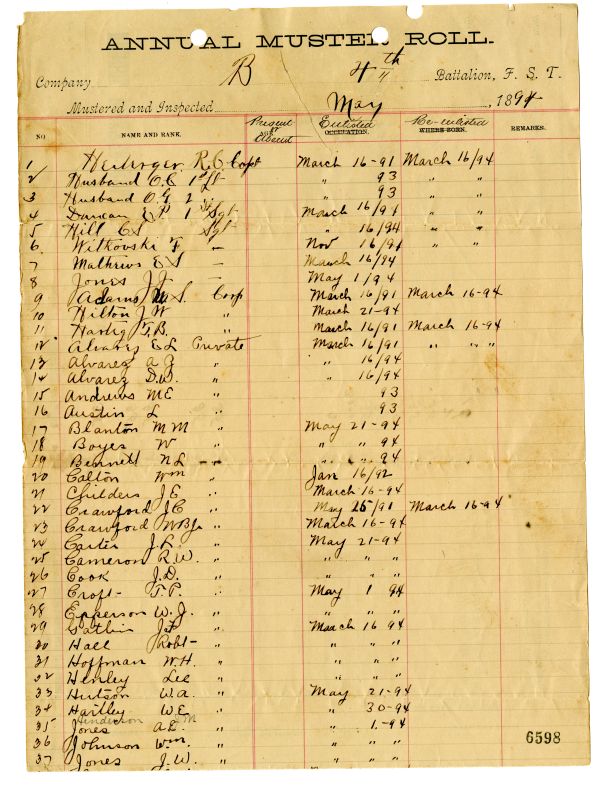 ANNUAL MUSTER ROLL.
Company B 4th Battalion, F. S. T.
Mustered and Inspected May, 1894
NO. NAME AND RANK. Present or Absent Enlisted OCCUPATION. Re-enlisted WHERE BORN. REMARKS.
1 R.C. Capt March 16-91 March 16/94
2 Husband C.C. 1st Lt " 93 " "
3 Husband O.G. 2 " " 93 " "
4 Duncan 1 Sgt March 16/91 " "
5 Hill E.S. Sgt " 16/94 " "
6. Witkovski F — Nov 16/94 " "
7 Mathews E.S. — March 16/94
8 Jones J.J. — May 1/94
9 Adams W.S. Corp March 16/91 March 16-94
10 Hilton J.W " March 21-94
11 Hartig T.B. " March 16/91 March 16-94
12 Alvarez E.L Private March 16/91 " " "
13 Alvarez A J " " 16/94
14 Alvarez D.W. " " 16/94
15 Andrews M E " 93
16 Austin L " 93
17 Blanton M M " May 21-94
18 Boyes W " " " 94
19 Bennett N L " " " 94
20 Colton Wm " Jan 16/92
21 Childers J E " March 16-94
22 Crawford J C " May 25/91 March 16-94
23 Crawford W B Jr " March 16-94
24 Carter J.L. " May 21-94
25 Cameron R.W. " " " "
26 Cook J.D. " " " "
27 Croft T.P. " May 1 94
28 Epperson W.J. " " " "
29 Gatlin J.F. " March 16 94
30 Hall Robt " " " "
31 Hoffman W.H. " " " "
32 Henley Lee " " " "
33 Hutson W.A. " May 21-94
34 Hartley W.E. " " 30-94
Henderson J M
35 Jones A.E. " " 1.-94
36 Johnson Wm. " " " "
37 Jones J.W. " " " "
6598